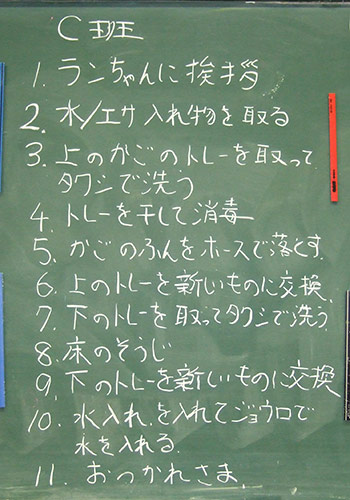 C班
1. ランちゃんに挨拶
2. 水/エサ入れ物を取る
3. 上のかごのトレーを取って
タワシで洗う
4. トレーを干して消毒
5. かごのふんをホースで落とす.
6. 上のトレーを新しいものに交換.
7. 下のトレーを取ってタワシで洗う.
8. 床のそうじ
9. 下のトレーを新しいものに交換
10. 水入れ.を入れてジョウロで
水を入れる.
11. おつかれさま.